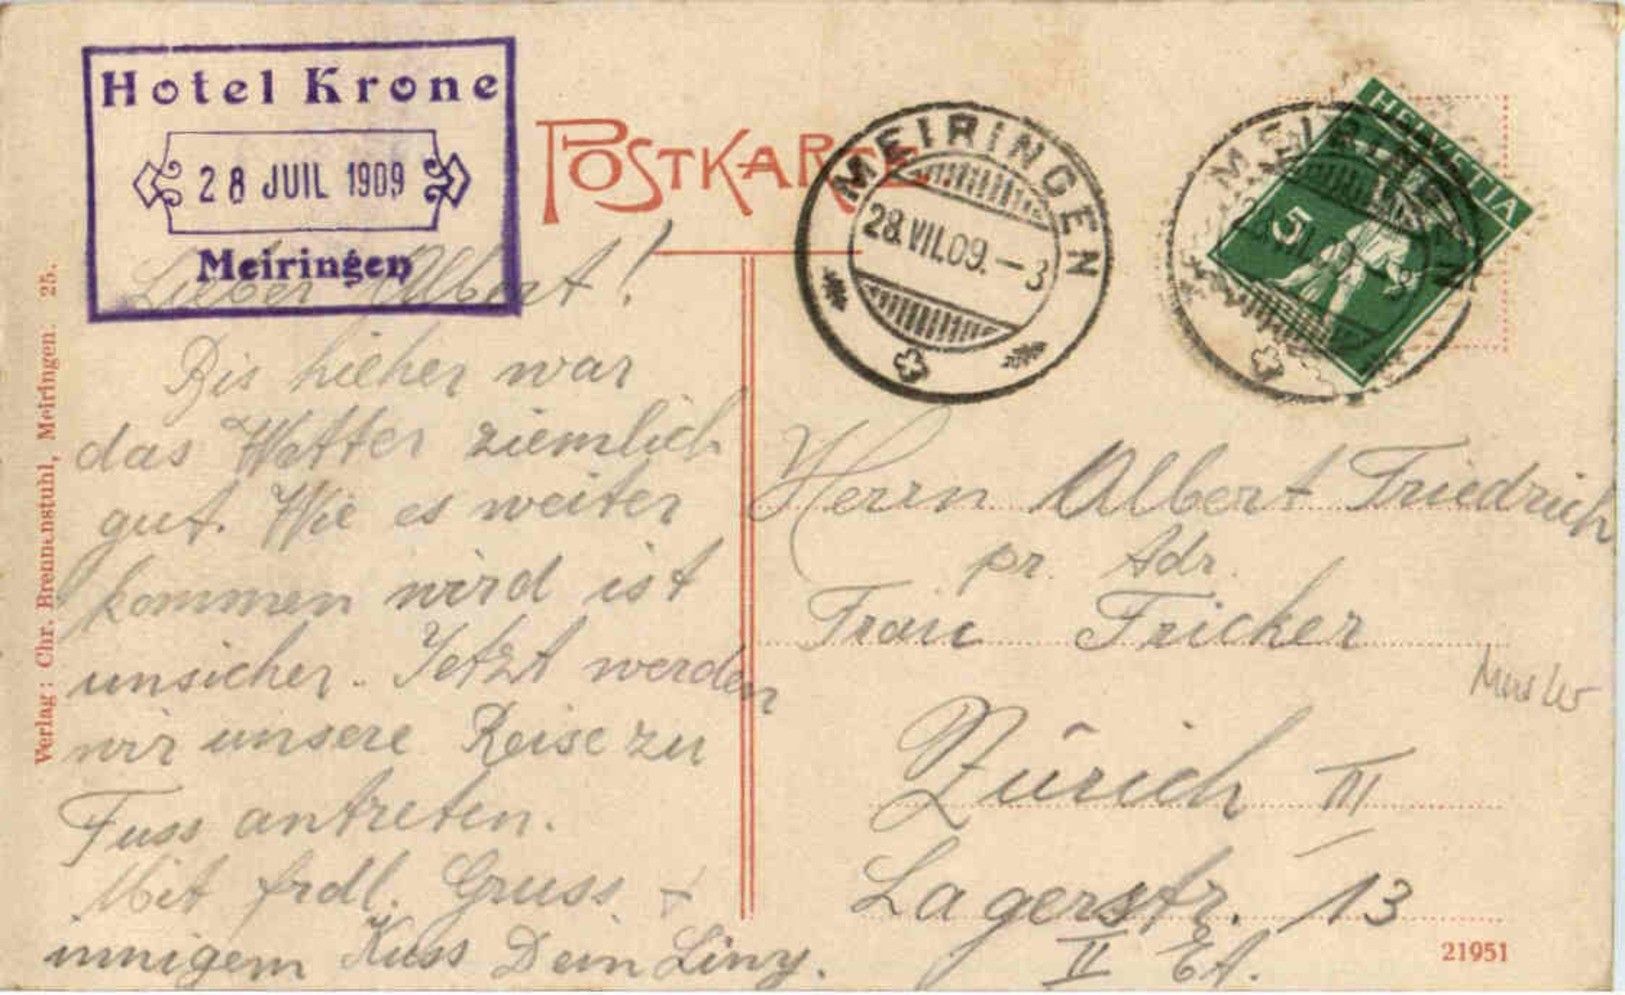 Hotel Krone
28 JUIL 1909
Meiringen
POSTKARTE
MEIRINGEN
28.VII.09.-3
HELVETIA
5
MEIRINGEN
Lieber Albert!
Bis hieher war
das Wetter ziemlich
gut. Wie es weiter
kommen wird ist
unsicher. Jetzt werden
wir unsere Reise zu
Fuss antreten.
Mit frdl. Gruss +
innigem Kuss Dein Liny.
Herrn Albert Friedrich
pr. Adr.
Frau Fricker
Zürich III
Lagerstr. 13
II Et.
Verlag: Chr. Brennenstuhl, Meiringen. 25.
21951